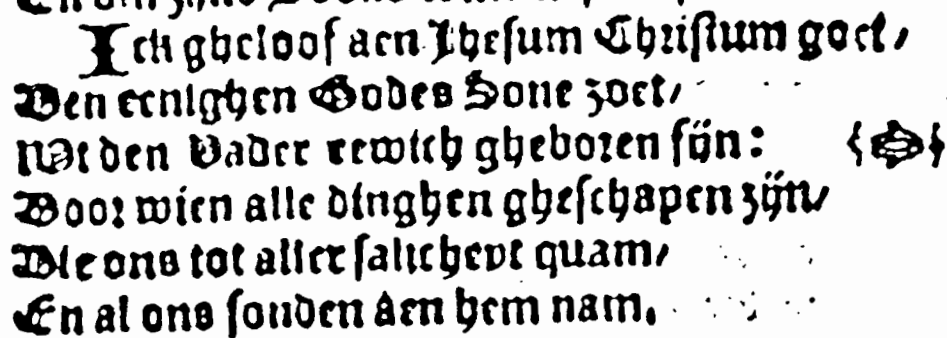 Ick gheloof aen Jhesum Christum goet/
Den eenighen Godes Sone zoet/
Wt den Vader eewich gheboren fijn:
Door wien alle dinghen gheschapen zijn/
Die ons tot aller salicheyt quam/
En al ons sonden aen hem nam.